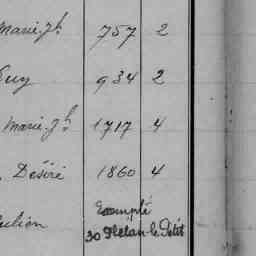 Marie Jh 757 2
Guy 934 2
Marie Jh 1717 4
Désiré 1860 4
Exempté
30 Plélan le Petit